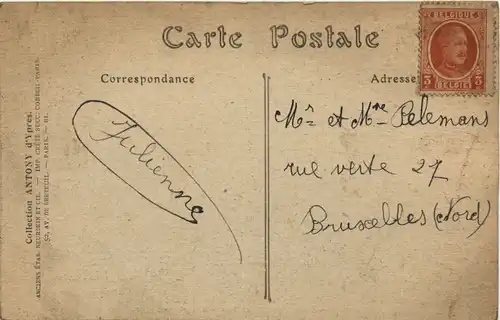 Carte Postale
Correspondance
Adresse
BELGIQUE
5 5
BELGIË
Julienne
Mr et Mme Pelemans
rue verte 27
Bruxelles (Nord)
Collection ANTONY d'Ypres
ANCIENS ÉTAB. NEURDEIN ET CIE. — IMP. CRÉTÉ SUCC. CORBEIL-PARIS.
52, AV. DE BRETEUIL. — PARIS. —